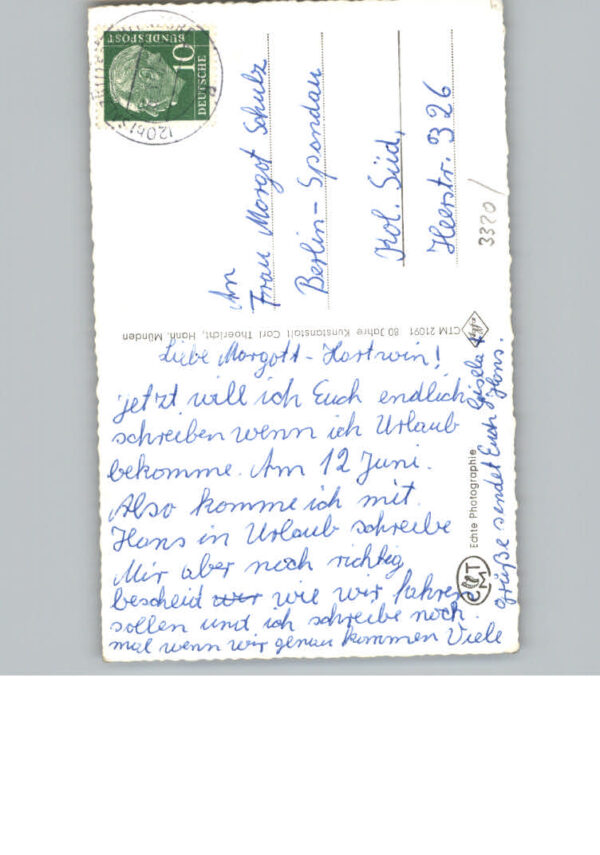 DEUTSCHE
BUNDESPOST
10
An
Frau Margot Schulz
Berlin-Spandau
Kol. Süd,
Heerstr. 326
3320/
CTM 21091 80 Jahre Kunstanstalt Carl Thoericht, Hann. Münden
Liebe Margott-Hartwin!
jetzt will ich Euch endlich
schreiben wenn ich Urlaub
bekomme. Am 12 Juni.
Also komme ich mit
Hans in Urlaub schreibe
Mir aber noch richtig
bescheid wer wie wir fahren
sollen und ich schreibe noch
mal wenn wir genau kommen Viele
Grüße sendet Euch Gisela +
Hans.
Echte Photographie
CTM